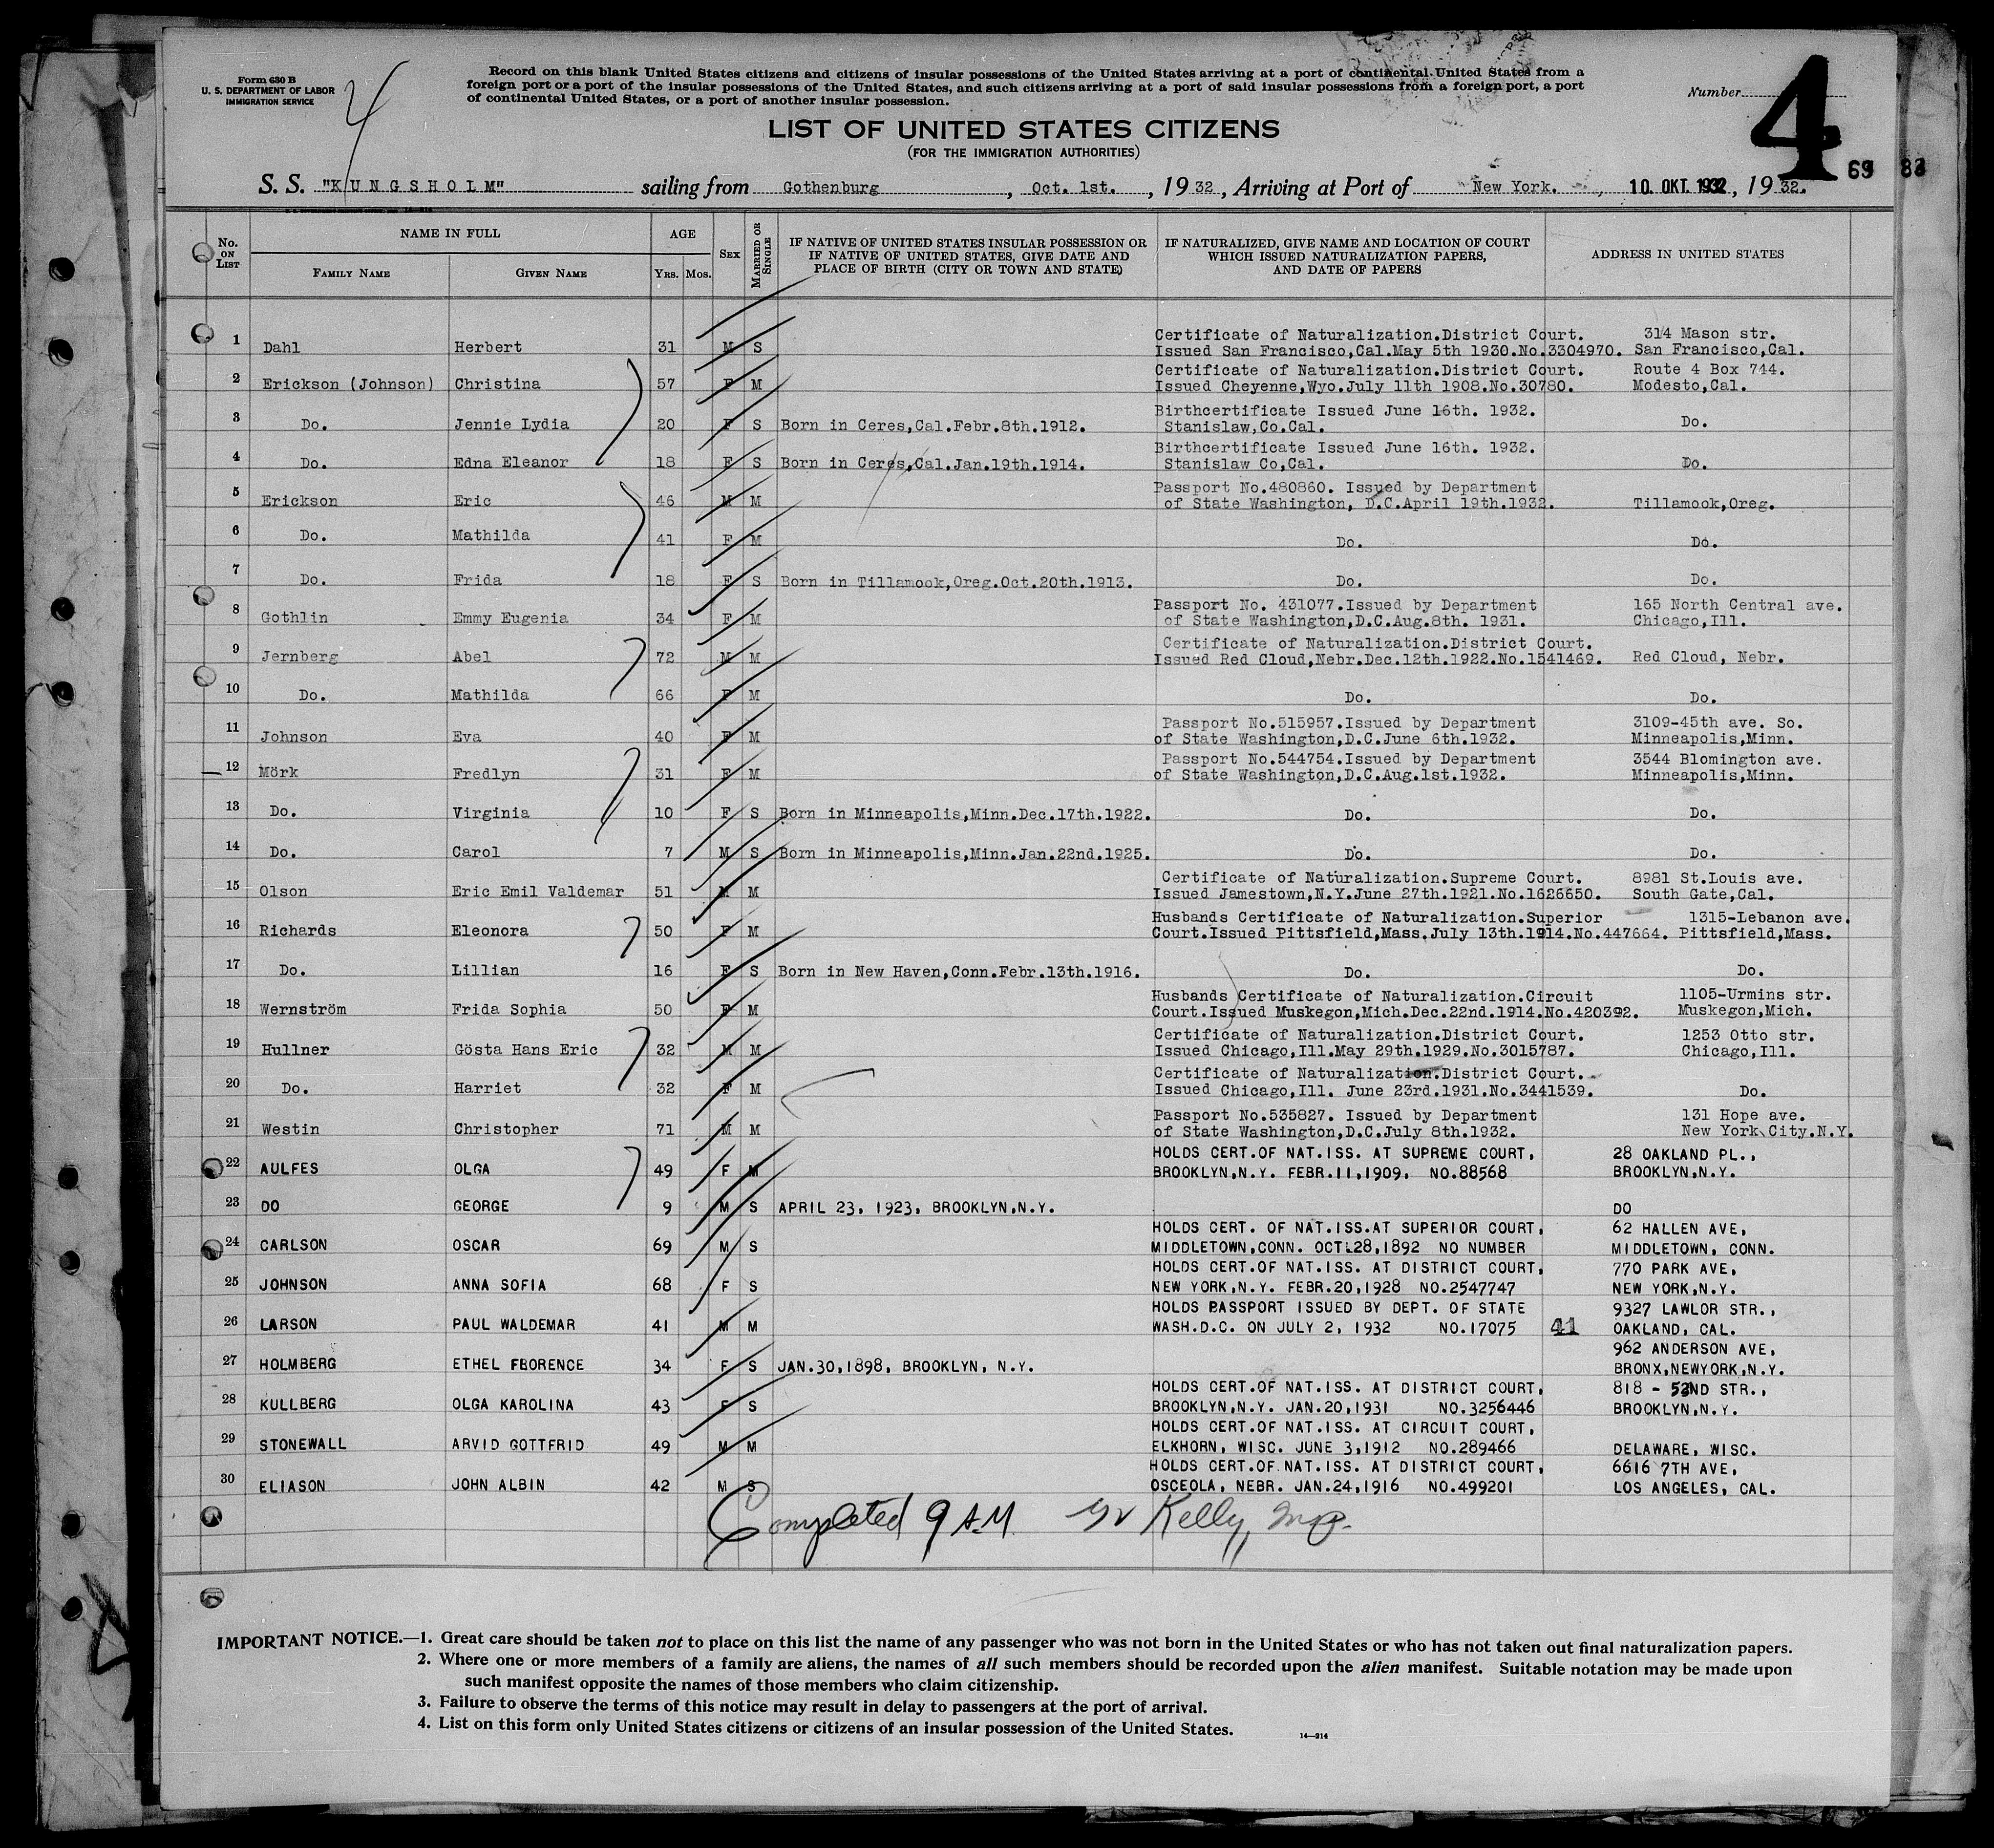 Form 630 B
U. S. DEPARTMENT OF LABOR
IMMIGRATION SERVICE
4
Record on this blank United States citizens and citizens of insular possessions of the United States arriving at a port of continental United States from a
foreign port or a port of the insular possessions of the United States, and such citizens arriving at a port of said insular possessions from a foreign port, a port
of continental United States, or a port of another insular possession.
Number 4
LIST OF UNITED STATES CITIZENS
(FOR THE IMMIGRATION AUTHORITIES)
69 83
S. S. "KUNGSHOLM" sailing from Gothenburg, Oct. 1st., 1932, Arriving at Port of New York. 10. OKT. 1932, 1932.
No. ON LIST
NAME IN FULL
FAMILY NAME GIVEN NAME
AGE
YRS. MOS.
SEX
MARRIED OR SINGLE
IF NATIVE OF UNITED STATES INSULAR POSSESSION OR
IF NATIVE OF UNITED STATES, GIVE DATE AND
PLACE OF BIRTH (CITY OR TOWN AND STATE)
IF NATURALIZED, GIVE NAME AND LOCATION OF COURT
WHICH ISSUED NATURALIZATION PAPERS,
AND DATE OF PAPERS
ADDRESS IN UNITED STATES
Certificate of Naturalization.District Court. 314 Mason str.
1 Dahl Herbert 31 M S Issued San Francisco,Cal.May 5th 1930.No.3304970. San Francisco,Cal.
Certificate of Naturalization.District Court. Route 4 Box 744.
2 Erickson (Johnson) Christina 57 F M Issued Cheyenne,Wyo.July 11th 1908.No.30780. Modesto,Cal.
Birthcertificate Issued June 16th. 1932.
3 Do. Jennie Lydia 20 F S Born in Ceres,Cal.Febr.8th.1912. Stanislaw,Co.Cal. Do.
Birthcertificate Issued June 16th. 1932.
4 Do. Edna Eleanor 18 F S Born in Ceres,Cal.Jan.19th.1914. Stanislaw Co,Cal. Do.
Passport No.480860. Issued by Department
5 Erickson Eric 46 M M of State Washington, D.C.April 19th.1932. Tillamook,Oreg.
6 Do. Mathilda 41 F M Do. Do.
7 Do. Frida 18 F S Born in Tillamook,Oreg.Oct.20th.1913. Do. Do.
Passport No. 431077.Issued by Department 165 North Central ave.
8 Gothlin Emmy Eugenia 34 F M of State Washington,D.C.Aug.8th. 1931. Chicago,Ill.
Certificate of Naturalization.District Court.
9 Jernberg Abel 72 M M Issued Red Cloud,Nebr.Dec.12th.1922.No.1541469. Red Cloud, Nebr.
10 Do. Mathilda 66 F M Do. Do.
Passport No.515957.Issued by Department 3109-45th ave. So.
11 Johnson Eva 40 F M of State Washington,D.C.June 6th.1932. Minneapolis,Minn.
Passport No.544754.Issued by Department 3544 Blomington ave.
12 Mörk Fredlyn 31 F M of State Washington,D.C.Aug.1st.1932. Minneapolis,Minn.
13 Do. Virginia 10 F S Born in Minneapolis,Minn.Dec.17th.1922. Do. Do.
14 Do. Carol 7 M S Born in Minneapolis,Minn.Jan.22nd.1925. Do. Do.
Certificate of Naturalization.Supreme Court. 8981 St.Louis ave.
15 Olson Eric Emil Valdemar 51 M M Issued Jamestown,N.Y.June 27th.1921.No.1626650. South Gate,Cal.
Husbands Certificate of Naturalization.Superior 1315-Lebanon ave.
16 Richards Eleonora 50 F M Court.Issued Pittsfield,Mass.July 13th.1914.No.447664. Pittsfield,Mass.
17 Do. Lillian 16 F S Born in New Haven,Conn.Febr.13th.1916. Do. Do.
Husbands Certificate of Naturalization.Circuit 1105-Urmins str.
18 Wernström Frida Sophia 50 F M Court.Issued Muskegon,Mich.Dec.22nd.1914.No.420392. Muskegon,Mich.
Certificate of Naturalization.District Court. 1253 Otto str.
19 Hullner Gösta Hans Eric 32 M M Issued Chicago,Ill.May 29th.1929.No.3015787. Chicago,Ill.
Certificate of Naturalization.District Court.
20 Do. Harriet 32 F M Issued Chicago,Ill. June 23rd.1931.No.3441539. Do.
Passport No.535827. Issued by Department 131 Hope ave.
21 Westin Christopher 71 M M of State Washington,D.C.July 8th.1932. New York City.N.Y.
HOLDS CERT.OF NAT.ISS. AT SUPREME COURT, 28 OAKLAND PL.,
22 AULFES OLGA 49 F M BROOKLYN,N.Y. FEBR.11,1909, NO.88568 BROOKLYN,N.Y.
23 DO GEORGE 9 M S APRIL 23, 1923, BROOKLYN,N.Y. DO
HOLDS CERT. OF NAT.ISS.AT SUPERIOR COURT, 62 HALLEN AVE,
24 CARLSON OSCAR 69 M S MIDDLETOWN,CONN. OCT.28,1892 NO NUMBER MIDDLETOWN, CONN.
HOLDS CERT.OF NAT.ISS. AT DISTRICT COURT, 770 PARK AVE,
25 JOHNSON ANNA SOFIA 68 F S NEW YORK,N.Y. FEBR.20,1928 NO.2547747 NEW YORK,N.Y.
HOLDS PASSPORT ISSUED BY DEPT. OF STATE 9327 LAWLOR STR.,
26 LARSON PAUL WALDEMAR 41 M M WASH.D.C. ON JULY 2, 1932 NO.17075 41 OAKLAND, CAL.
962 ANDERSON AVE,
27 HOLMBERG ETHEL FLORENCE 34 F S JAN.30,1898, BROOKLYN, N.Y. BRONX,NEWYORK,N.Y.
HOLDS CERT.OF NAT.ISS. AT DISTRICT COURT, 818 - 52ND STR.,
28 KULLBERG OLGA KAROLINA 43 F S BROOKLYN,N.Y. JAN.20,1931 NO.3256446 BROOKLYN,N.Y.
HOLDS CERT.OF NAT.ISS. AT CIRCUIT COURT,
29 STONEWALL ARVID GOTTFRID 49 M M ELKHORN, WISC. JUNE 3,1912 NO.289466 DELAWARE, WISC.
HOLDS CERT.OF NAT.ISS. AT DISTRICT COURT, 6616 7TH AVE,
30 ELIASON JOHN ALBIN 42 M S OSCEOLA, NEBR. JAN.24,1916 NO.499201 LOS ANGELES, CAL.
Completed 9 A.M. Kelly, Insp.
IMPORTANT NOTICE.—1. Great care should be taken not to place on this list the name of any passenger who was not born in the United States or who has not taken out final naturalization papers.
2. Where one or more members of a family are aliens, the names of all such members should be recorded upon the alien manifest. Suitable notation may be made upon
such manifest opposite the names of those members who claim citizenship.
3. Failure to observe the terms of this notice may result in delay to passengers at the port of arrival.
4. List on this form only United States citizens or citizens of an insular possession of the United States.
14—214